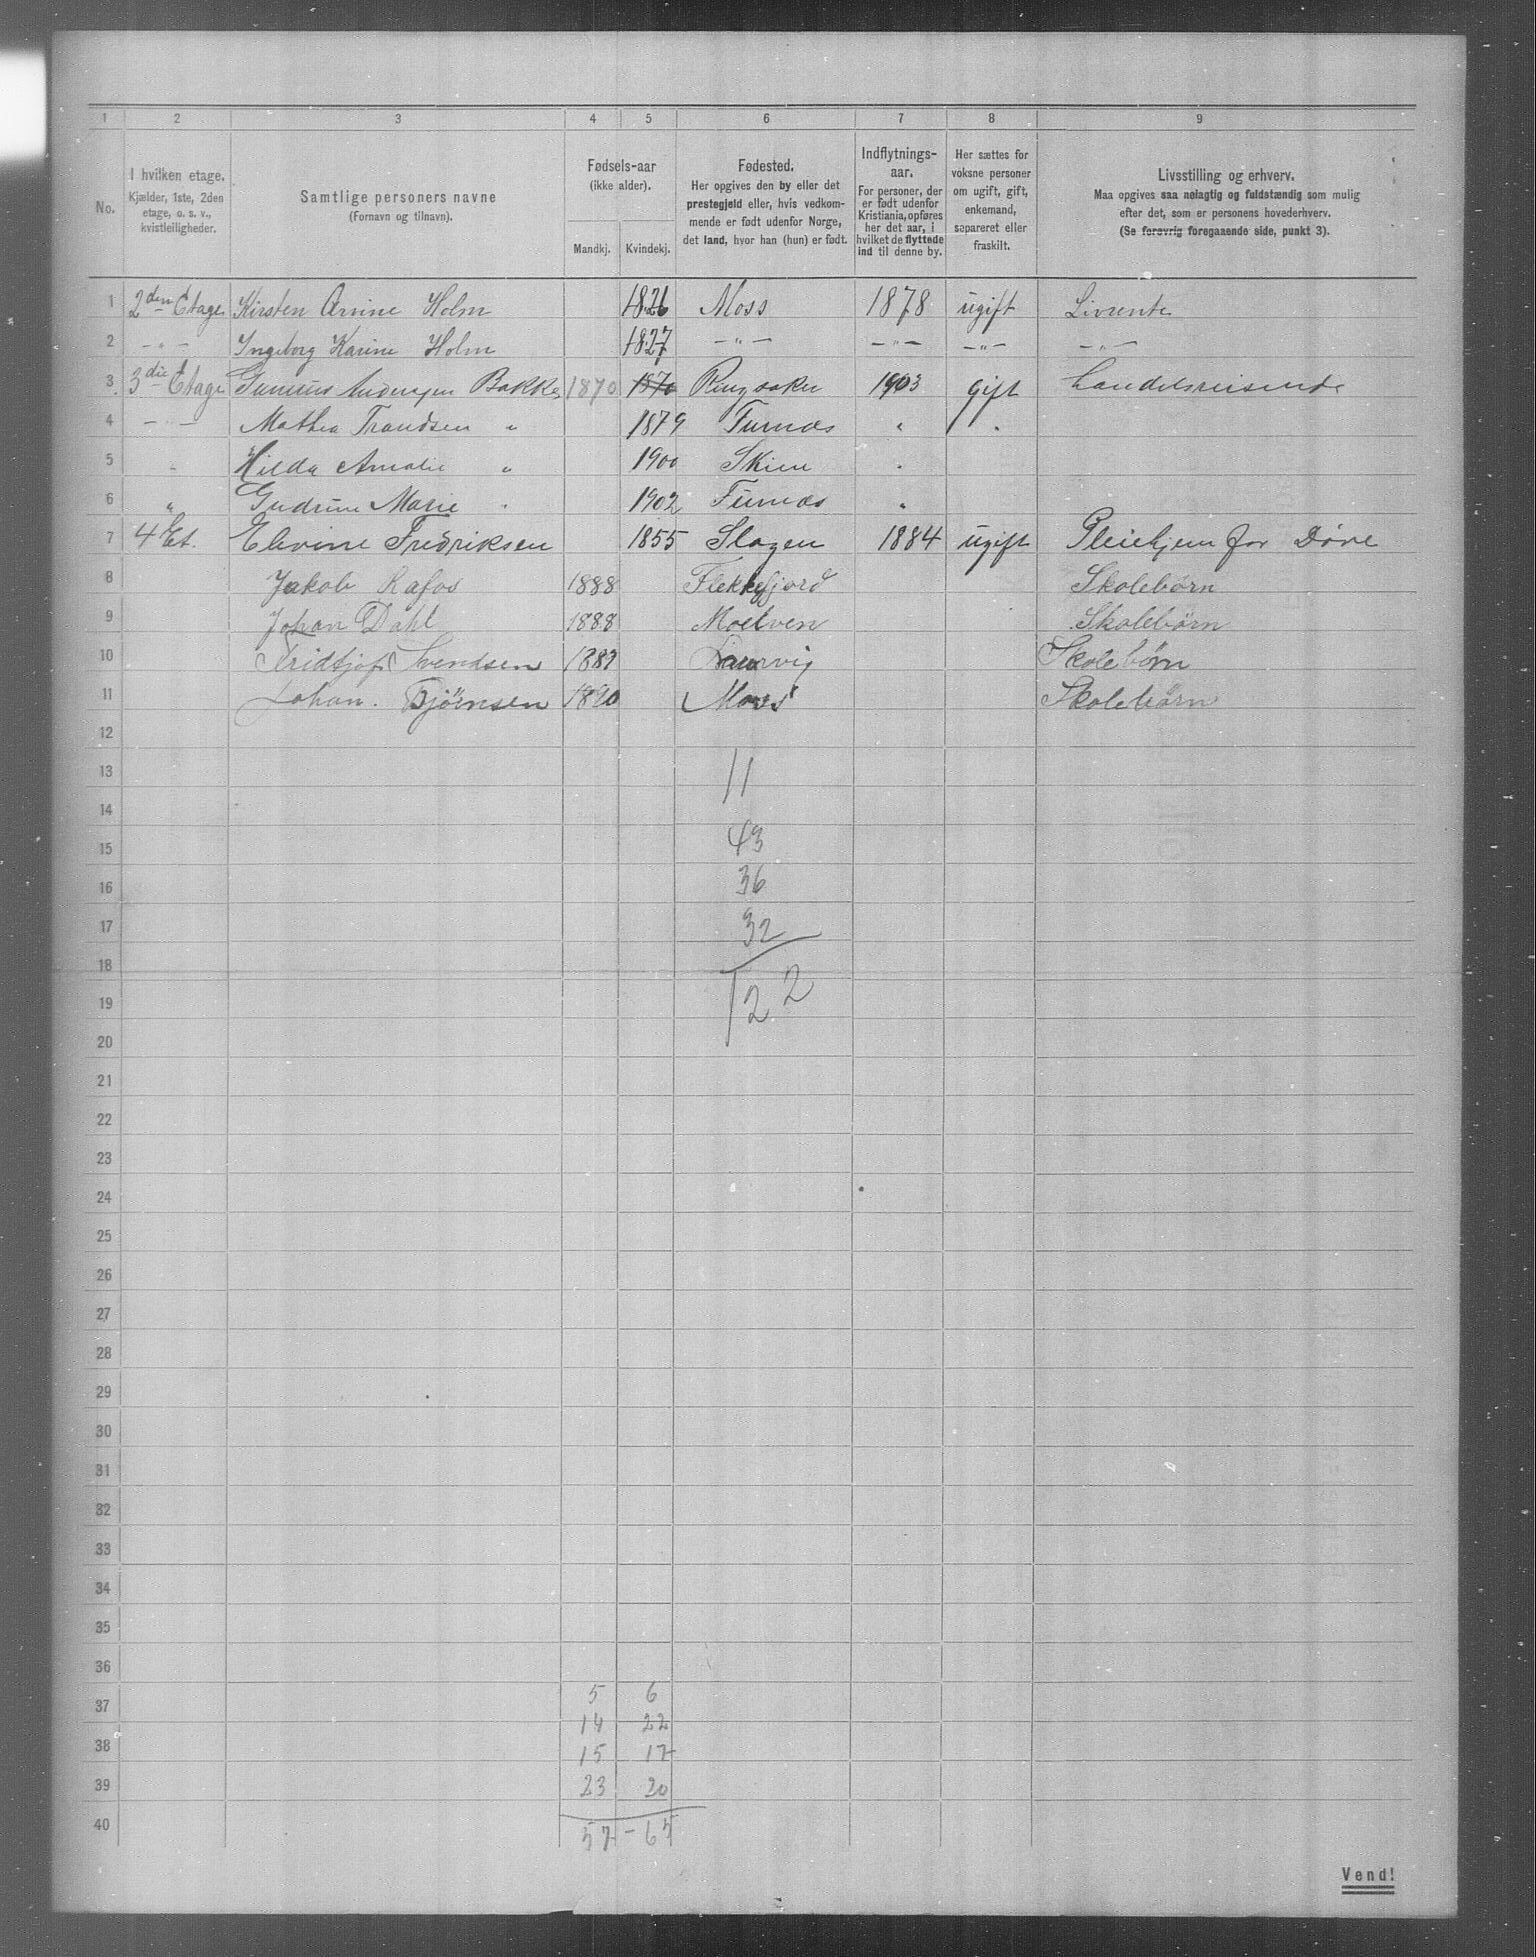 1 2 3 4 5 6 7 8 9
No.
I hvilken etage.
Kjælder, 1ste, 2den
etage, o. s. v.,
kvistleiligheder.
Samtlige personers navne
(Fornavn og tilnavn).
Fødsels-aar
(ikke alder).
Mandkj. Kvindekj.
Fødested.
Her opgives den by eller det
prestegjeld eller, hvis vedkom-
mende er født udenfor Norge,
det land, hvor han (hun) er født.
Indflytnings-
aar.
For personer, der
er født udenfor
Kristiania, opføres
her det aar, i
hvilket de flyttede
ind til denne by.
Her sættes for
voksne personer
om ugift, gift,
enkemand,
separeret eller
fraskilt.
Livsstilling og erhverv.
Maa opgives saa nøiagtig og fuldstændig som mulig
efter det, som er personens hovederhverv.
(Se forøvrig foregaaende side, punkt 3).
1 2den Etage Kirsten Arnine Holm 1826 Moss 1878 ugift Livrente
2 — " — Ingeborg Karine Holm 1827 — " — — " — — " — — " —
3 3die Etage Gunnius Andersen Bakke 1870 1870 Ringsaker 1903 gift Handelsreisende
4 — " — Mathea Trondsen " 1879 Furnæs " "
5 " Hilda Amalie " 1900 Skien "
6 " Gudrun Marie " 1902 Furnæs "
7 4 Et. Elevine Fredriksen 1855 Slagen 1884 ugift Pleiehjem for Døve
8 Jakob Rafos 1888 Flekkefjord Skolebørn
9 Johan Dahl 1888 Moelven Skolebørn
10 Fridtjof Svendsen Laurvig Skolebørn
11 Johan. Bjørnsen 1890 Moss Skolebørn
12
13 11
14
15 43
16 36
17 32
18
19 122
20
21
22
23
24
25
26
27
28
29
30
31
32
33
34
35
36
37 5 6
38 14 22
15 17
39 23 20
40 57 - 65
Vend!